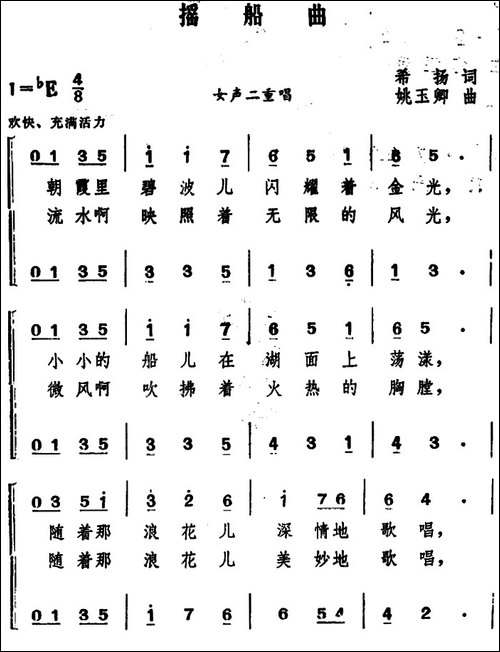 摇船曲
1=♭E 4/8
女声二重唱
希扬 词
姚玉卿 曲
欢快、充满活力
0 1 3 5 | 1 1 7 | 6 5 1 | 6 5 ·
朝霞里 碧波儿 闪耀着 金光，
流水啊 映照着 无限的 风光，
0 1 3 5 | 3 3 5 | 1 3 6 | 1 3 ·
0 1 3 5 | 1 1 7 | 6 5 1 | 6 5 ·
小小的 船儿在 湖面上 荡漾，
微风啊 吹拂着 火热的 胸膛，
0 1 3 5 | 3 3 5 | 4 3 1 | 4 3 ·
0 3 5 1 | 3 2 6 | 1 7 6 | 6 4 ·
随着那 浪花儿 深情地 歌唱，
随着那 浪花儿 美妙地 歌唱，
0 1 3 5 | 1 7 6 | 6 5 4 | 4 2 ·